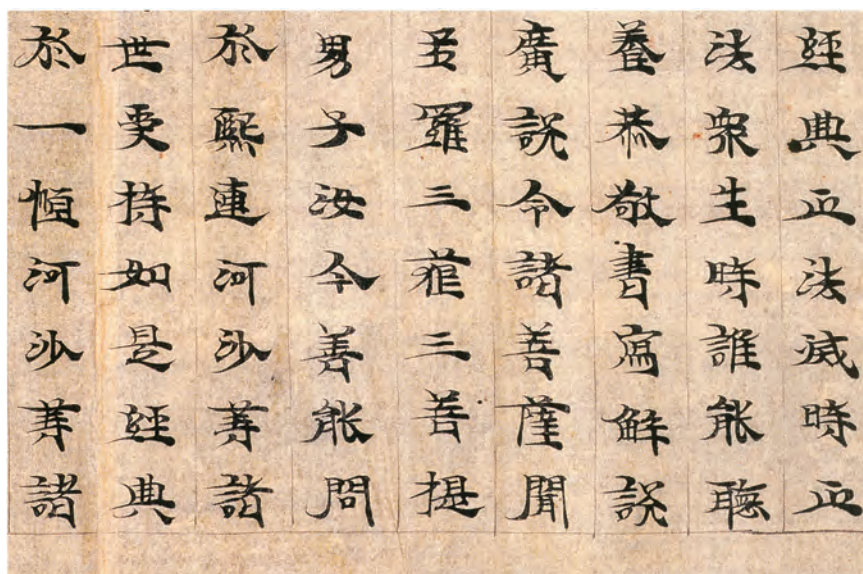 經典正法滅時正
法衆生時誰能聽
養恭敬書寫解說
廣說令諸菩薩聞
多羅三藐三菩提
男子汝今善能問
於熙連河沙等諸
世受持如是經典
於一恒河沙等諸